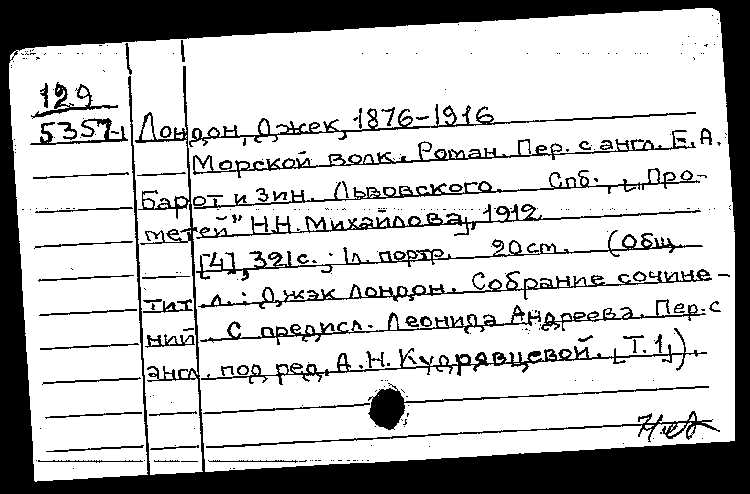 129
5357-1 Лондон, Джек, 1876-1916
Морской волк. Роман. Пер. с англ. Е.А.
Барот и Зин. Львовского. Спб., [„Про-
метей" Н.Н. Михайлова], 1912
[4], 321с.; 1л. портр. 20см. (Общ.
тит. л.: Джэк Лондон. Собрание сочине-
ний. С предисл. Леонида Андреева. Пер. с
англ. под ред. А.Н. Кудрявцевой. [Т. 1]).